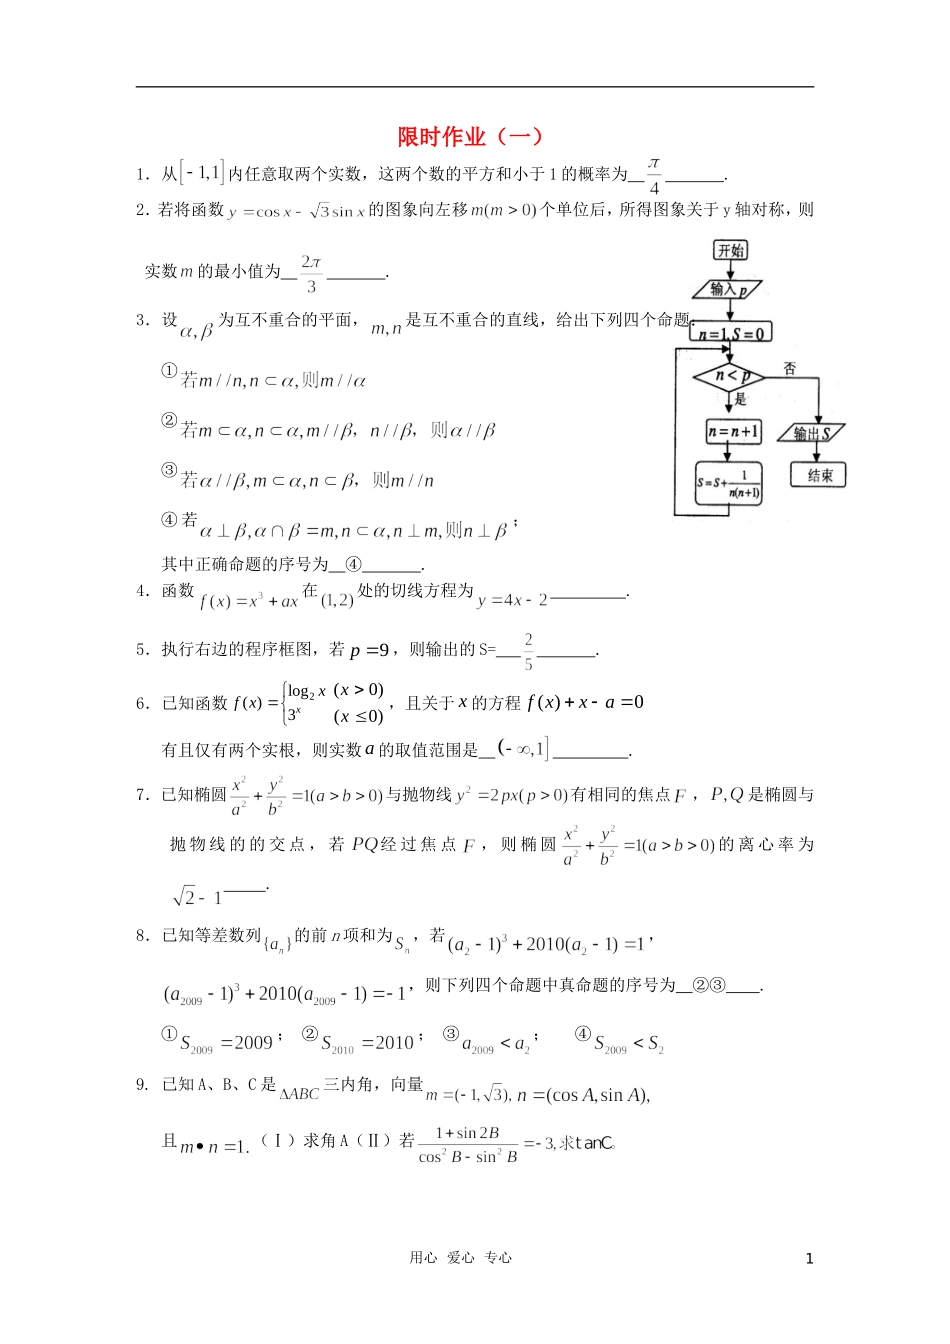 限时作业（一）
1．从[-1,1]内任意取两个实数，这两个数的平方和小于1的概率为 π/4 ．
2．若将函数 y=cosx-√3sinx 的图象向左移 m(m>0) 个单位后，所得图象关于y轴对称，则
实数 m 的最小值为 2π/3 ．
3．设 α,β 为互不重合的平面， m,n 是互不重合的直线，给出下列四个命题：
①若m//n,n⊂α,则m//α
②若m⊂α,n⊂α,m//β，n//β，则α//β
③若α//β,m⊂α,n⊂β，则m//n
④若α⊥β,α∩β=m,n⊂α,n⊥m,则n⊥β；
其中正确命题的序号为 ④ ．
开始
输入p
n=1,S=0
n<p
否
是
n=n+1
输出S
S=S+1/n(n+1)
结束
4．函数 f(x)=x³+ax 在 (1,2) 处的切线方程为 y=4x-2 ．
5．执行右边的程序框图，若 p=9，则输出的 S= 2/5 ．
6．已知函数 f(x)={log₂x (x>0) 3ˣ (x≤0)，且关于 x 的方程 f(x)+x-a=0
有且仅有两个实根，则实数 a 的取值范围是 (-∞,1] ．
7．已知椭圆 x²/a²+y²/b²=1(a>b>0) 与抛物线 y²=2px(p>0) 有相同的焦点 F ，P,Q 是椭圆与
抛物线的的交点，若 PQ 经过焦点 F ，则椭圆 x²/a²+y²/b²=1(a>b>0) 的离心率为
√2-1 ．
8．已知等差数列{aₙ}的前 n 项和为 Sₙ，若 (a₂-1)³+2010(a₂-1)=1，
(a₂₀₀₉-1)³+2010(a₂₀₀₉-1)=-1，则下列四个命题中真命题的序号为 ②③ ．
①S₂₀₀₉=2009； ②S₂₀₁₀=2010； ③a₂₀₀₉<a₂； ④S₂₀₀₉<S₂
9. 已知A、B、C是ΔABC三内角，向量 m=(-1,√3),n=(cosA,sinA),
且 m•n=1.（Ⅰ）求角A（Ⅱ）若 1+sin2B/cos²B-sin²B=-3,求tanC。
用心 爱心 专心
1